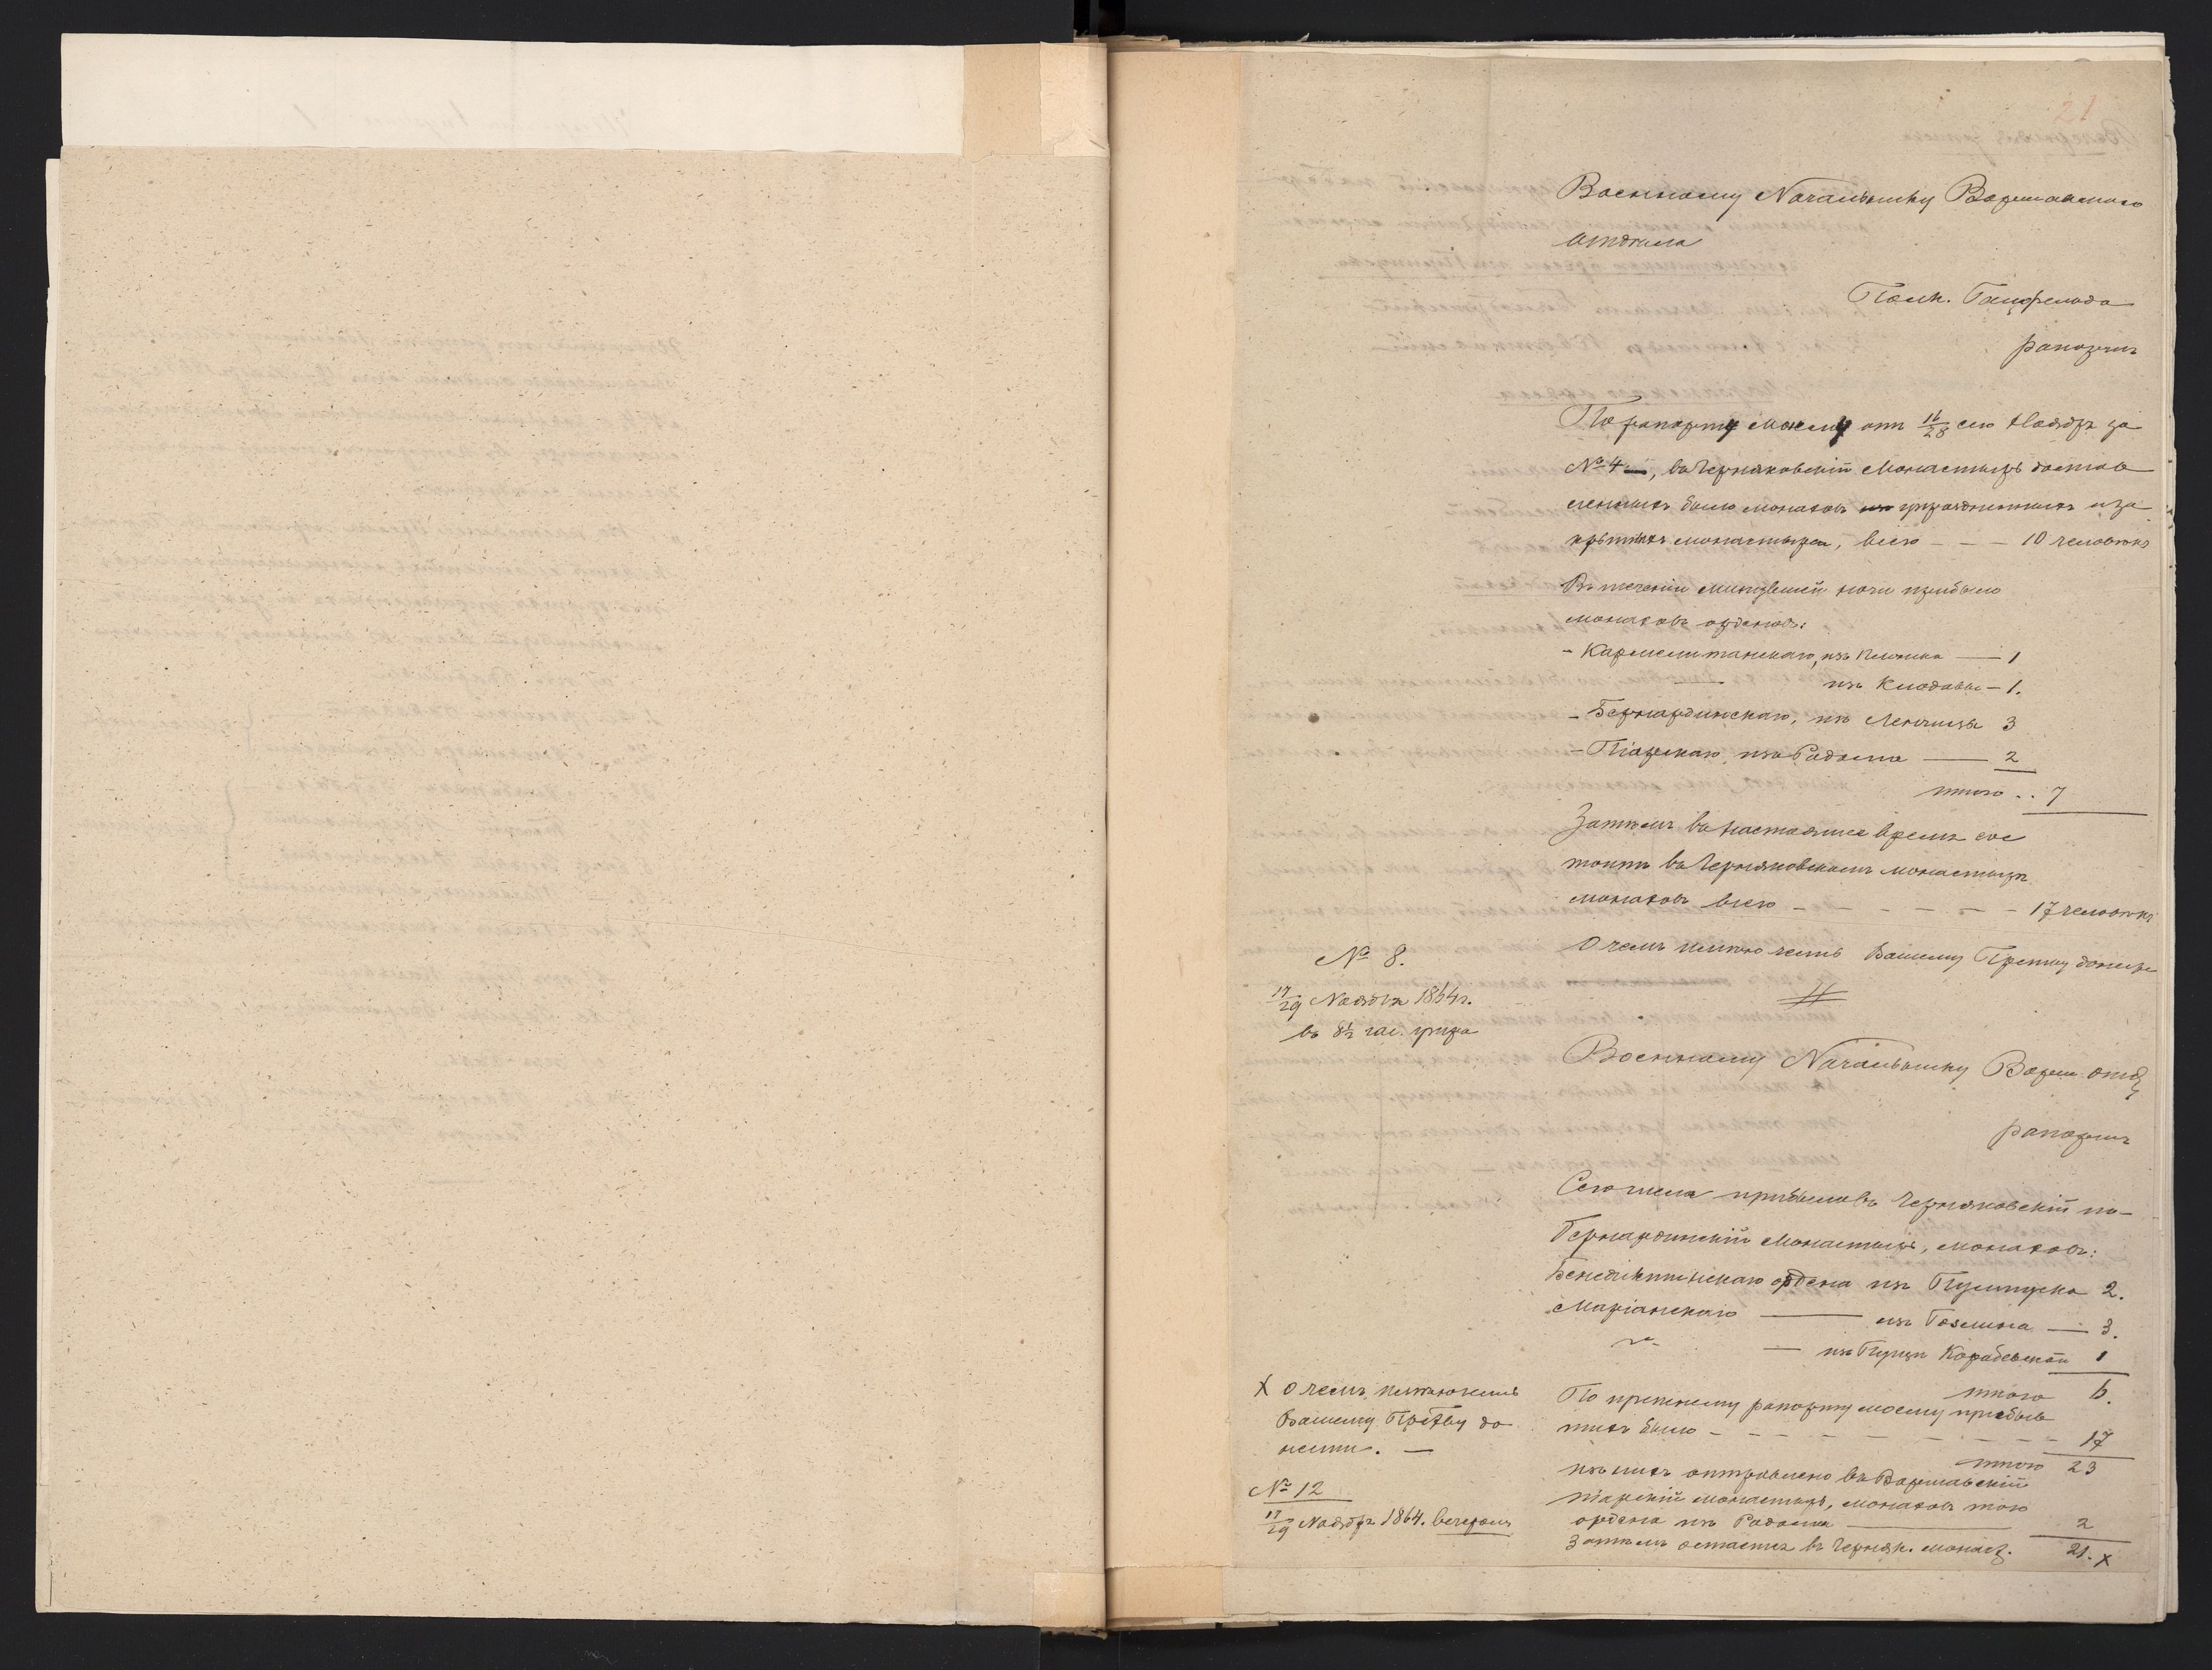 21
Военному Начальнику Варшавского
отдѣла
Полк. Ганфельда
рапортъ
По рапорту моему отъ 16/28 сего Ноября за
№ 4, въ Черняковскій монастырь достав
ленныхъ было монаховъ упраздненныхъ и за
крытыхъ монастырей, всего - - - 10 человѣкъ
Въ теченіи минувшей ночи прибыло
монаховъ орденовъ:
- Кармелитанскаго, изъ — 1
— изъ Клодавы - 1.
- Бернардинскаго, изъ Ленчицы 3
- Піарскаго, изъ Радома — 2
итого . . 7
Затѣмъ въ настоящее время сос
тоитъ въ Черняковскомъ монастырѣ
монаховъ всего - - - - - - 17 человѣкъ
О чемъ имѣю честь Вашему Прству донести
№ 8.
17/29 Ноября 1864 г.
въ 8½ час. утра
Военному Начальнику Варш. отд
рапортъ
Сего числа прибыло въ Черняковскій по-
Бернардинскій монастырь, монаховъ:
Бенедиктинскаго ордена изъ Пултуска 2.
Маріанскаго — изъ Гозлина — 3.
— изъ Пущи Корабевской 1
итого 6.
По прежнему рапорту моему прибыв
шихъ было - - - - - - - 17
итого 23
изъ нихъ отправлено въ Варшавскій
піарскій монастырь, монаховъ того
ордена изъ Радома — 2
Затѣмъ остается въ Черняк. монаст. 21. х
х О чемъ имѣю честь
Вашему Прству до
нести. —
№ 12
17/29 Ноября 1864. вечеромъ